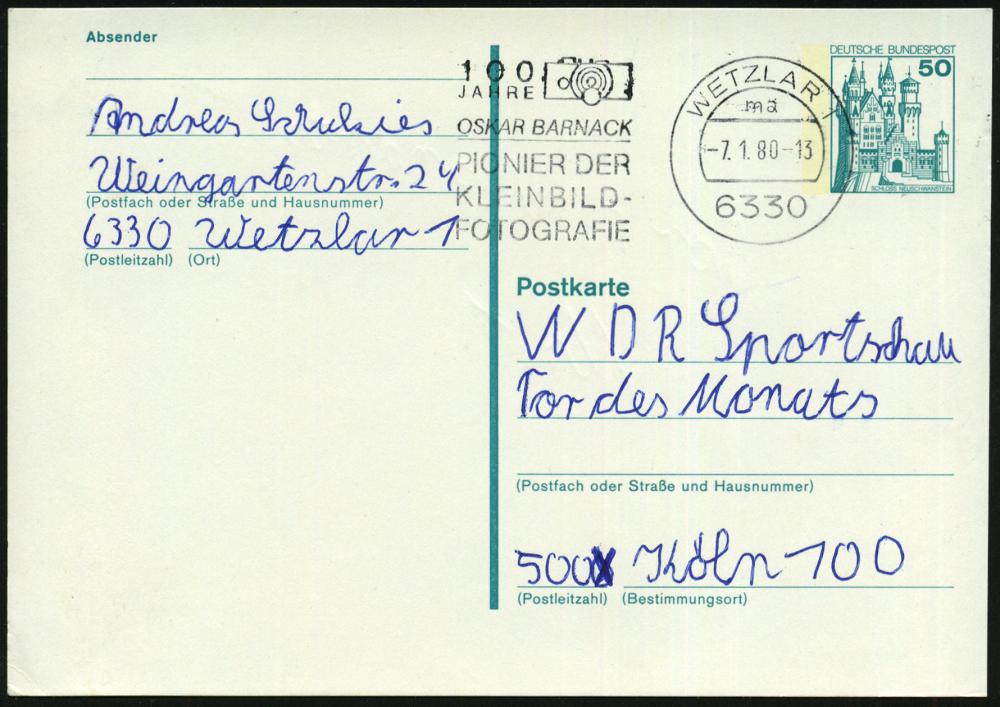 Absender
Andreas
Weingartenstr. 24
(Postfach oder Straße und Hausnummer)
6330 Wetzlar 1
(Postleitzahl) (Ort)
100
JAHRE
OSKAR BARNACK
PIONIER DER
KLEINBILD-
FOTOGRAFIE
WETZLAR 1
mä
-7.1.80-13
6330
DEUTSCHE BUNDESPOST
50
SCHLOSS NEUSCHWANSTEIN
Postkarte
WDR Sportschau
Tor des Monats
(Postfach oder Straße und Hausnummer)
500 Köln 100
(Postleitzahl) (Bestimmungsort)